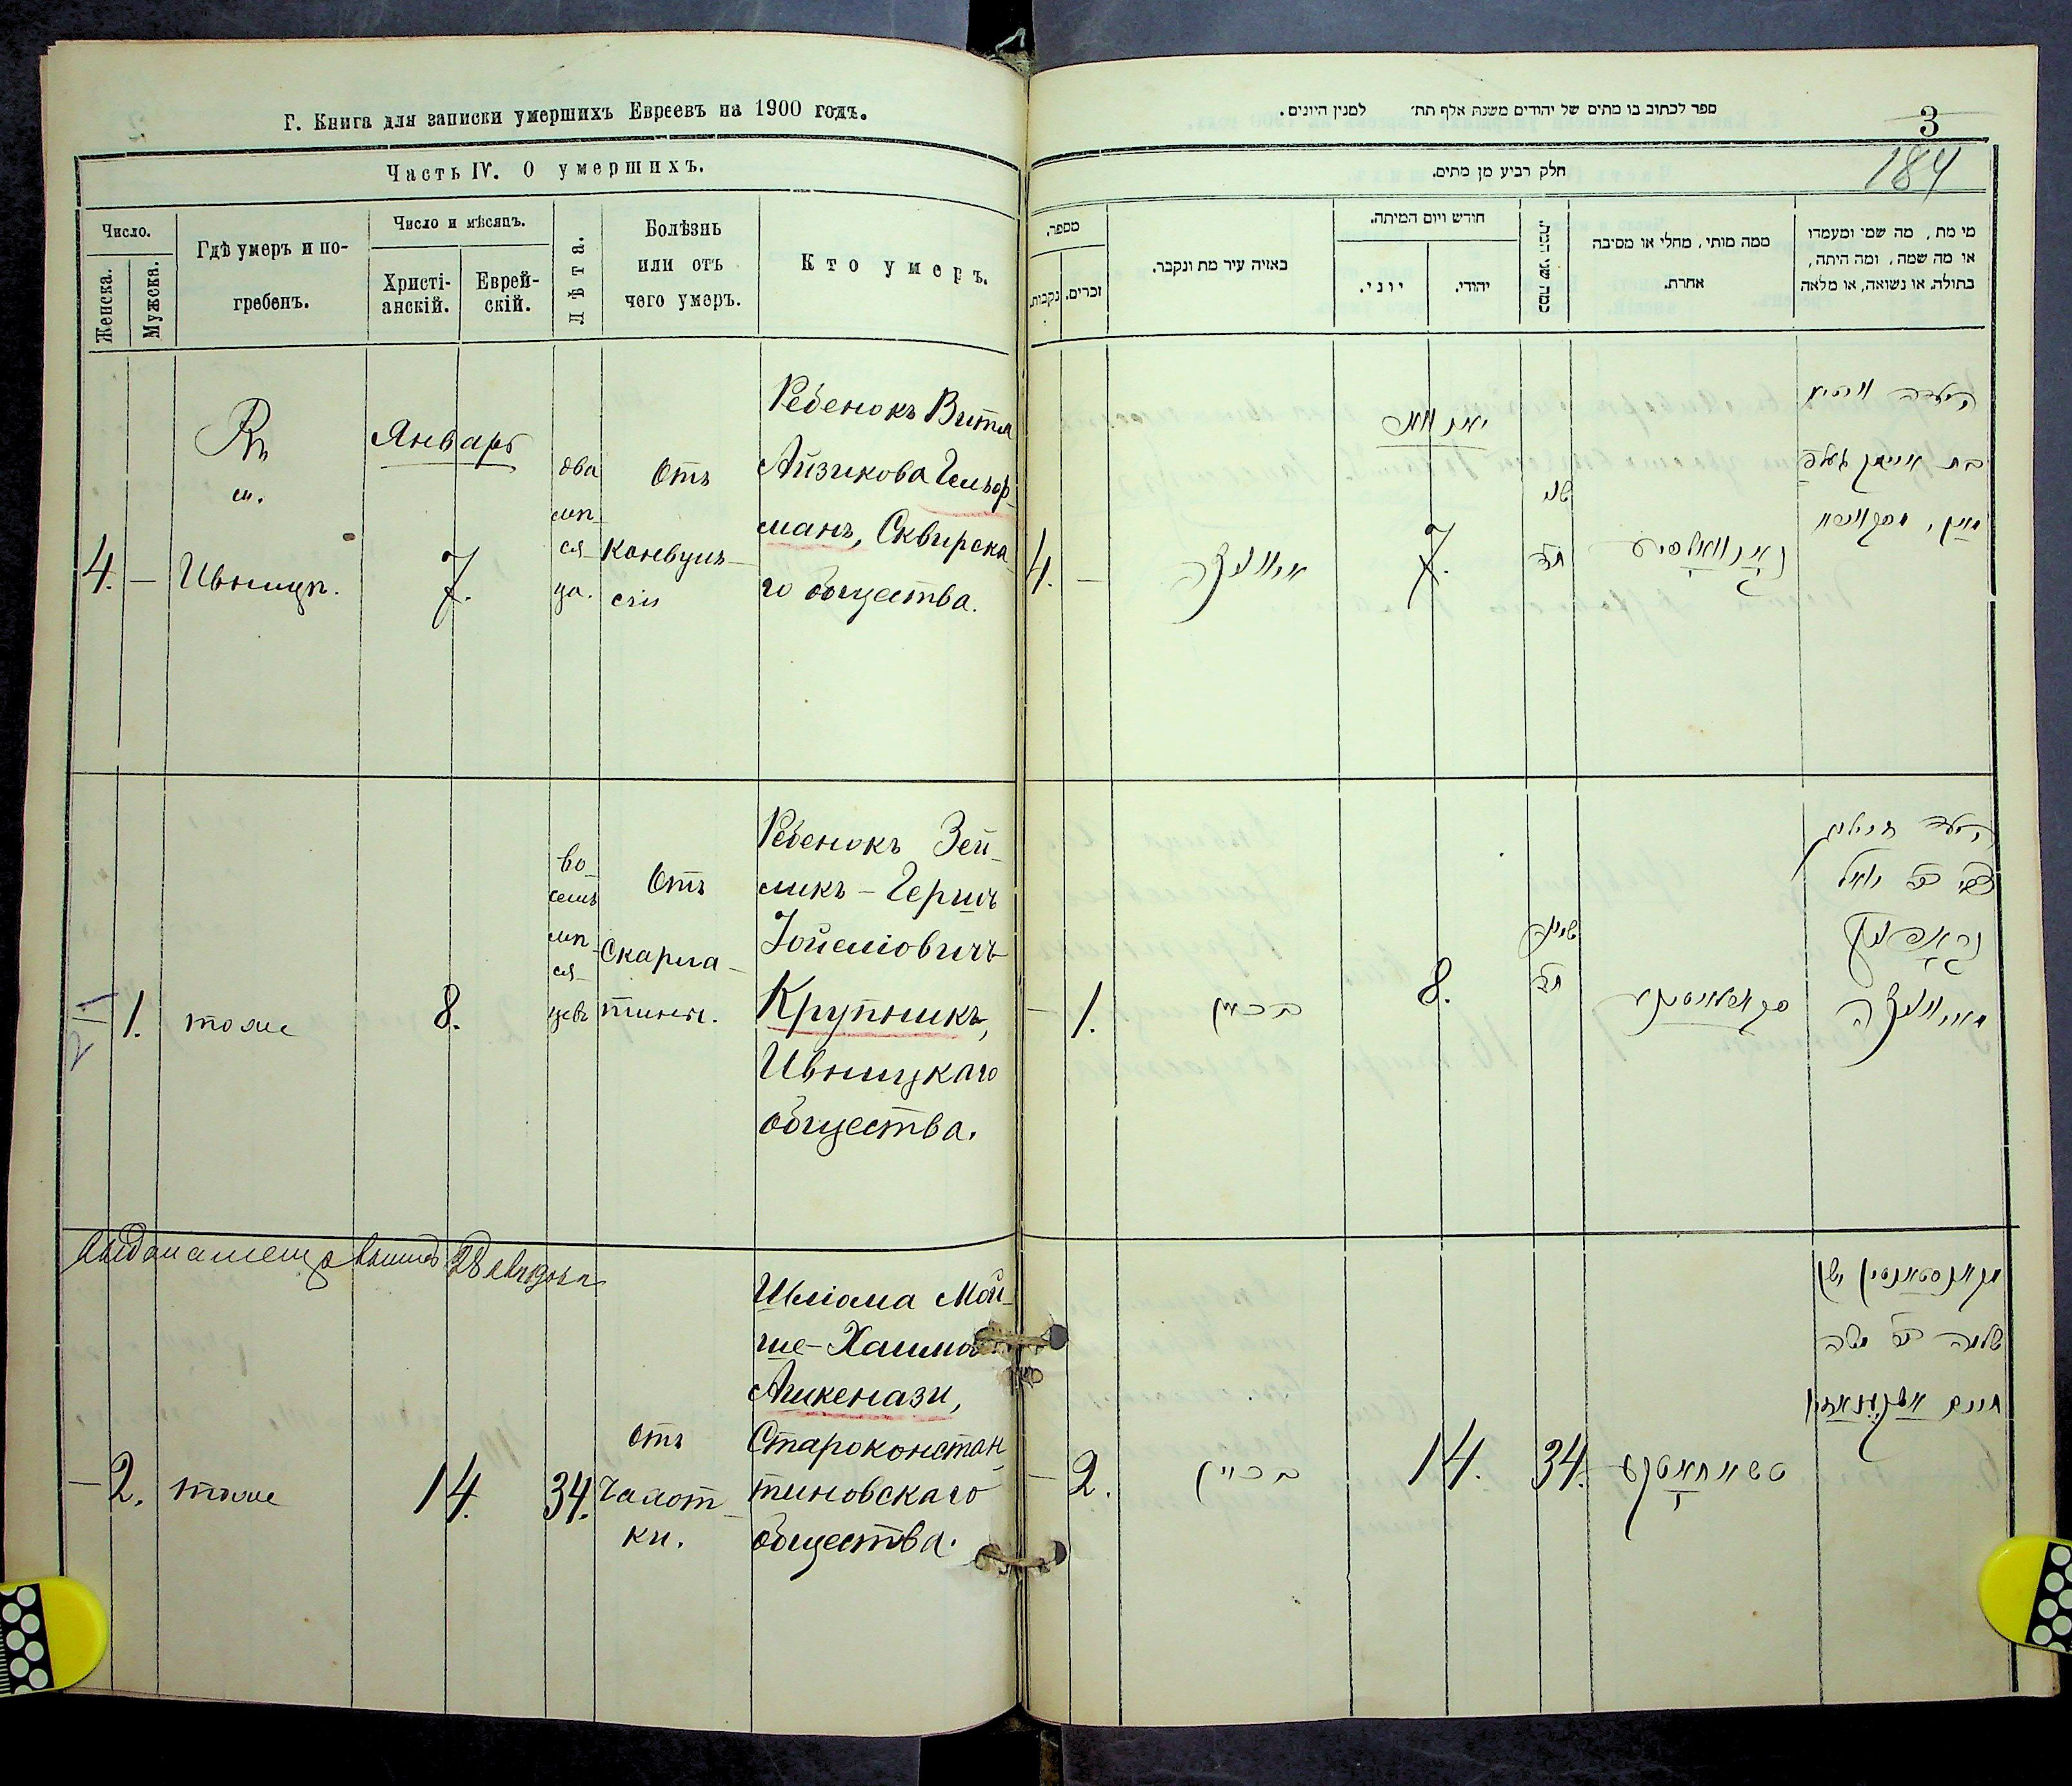 Г. Книга для записки умершихъ Евреевъ на 1900 годъ.
Часть IV. О умершихъ.
Число.
Женска.
Мужска.
Гдѣ умеръ и по-
гребенъ.
Число и мѣсяцъ.
Христі-
анскій.
Еврей-
скій.
Лѣта.
Болѣзнь
или отъ
чего умеръ.
Кто умеръ.
4. –
Въ
м.
Ивницѣ.
Январь
7.
два
мѣ-
ся-
ца.
Отъ
Конвуль-
сіи
Ребенокъ Витля
Айзикова Гельфор-
манъ, Сквирска-
го общества.
1.
тоже
8.
во-
семь
мѣ-
ся-
цевъ
Отъ
Скарла-
тины.
Ребенокъ Зей-
ликъ-Гершъ
Іойелiовичъ
Крупникъ,
Ивницкаго
общества.
– 2.
тоже
14.
34.
отъ
Чахот-
ки.
Шліома Мой-
ше-Хаимов
Ашкенази,
Староконстан-
тиновскаго
общества.
ספר לכתוב בו מתים של יהודים משנת אלף תת׳ למנין היונים.
3
184
חלק רביע מן מתים.
מספר.
נקבות.
זכרים.
באיזה עיר מת ונקבר.
חודש ויום המיתה.
יוני.
יהודי.
כמה שני חייו.
ממה מותו, מחלי או מסיבה
אחרת.
מי מת, מה שמו ומעמדו
או מה שמה, ומה היתה,
בתולה, או נשואה, או מלאה
4. –
איווניצה
יאנוואר
7.
שני
חד׳
הילדה
בת אייזיק
– 1.
8.
שמונה
חד׳
הילד
צבי בר׳ יואל
קרופניק
מאיווניצה
– 2.
14.
34.
שלמה בר׳ משה
חיים אשקענאזי